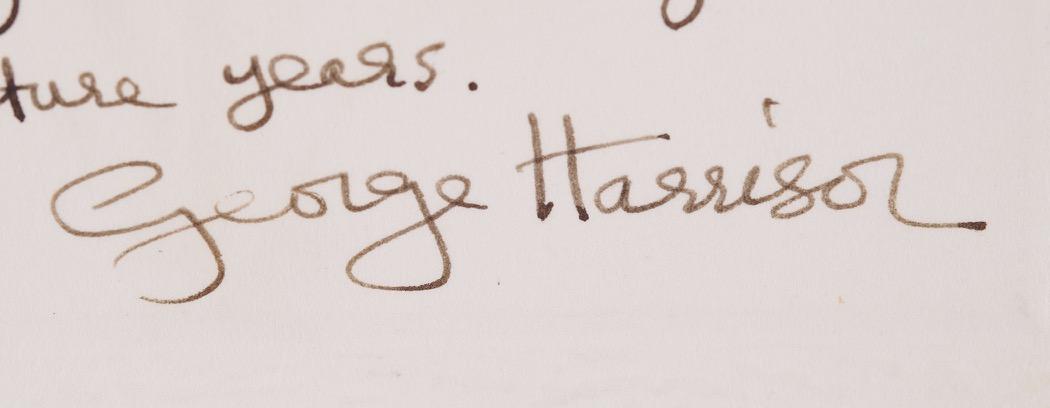 ture years.
George Harrison